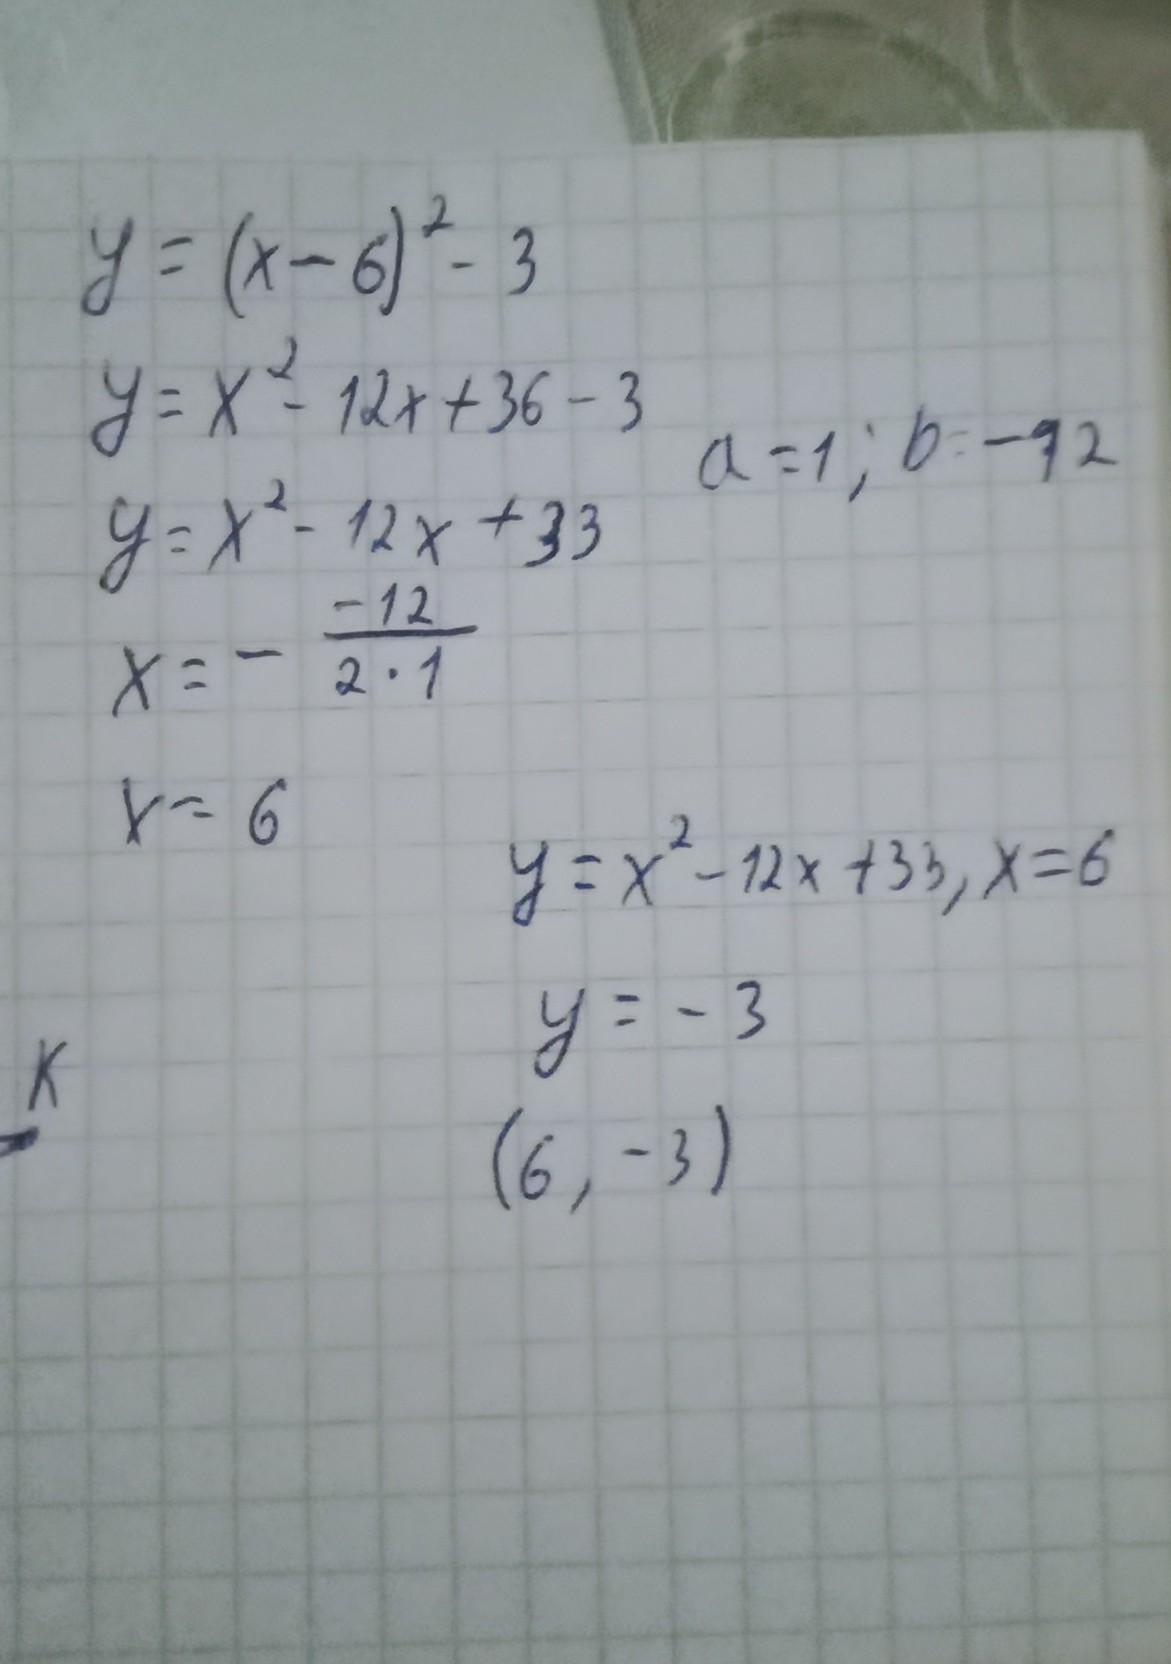 y = (x - 6)² - 3
y = x² - 12x + 36 - 3
a = 1; b = -12
y = x² - 12x + 33
x = - -12 / 2 · 1
x = 6
y = x² - 12x + 33, x = 6
y = -3
K
(6, -3)